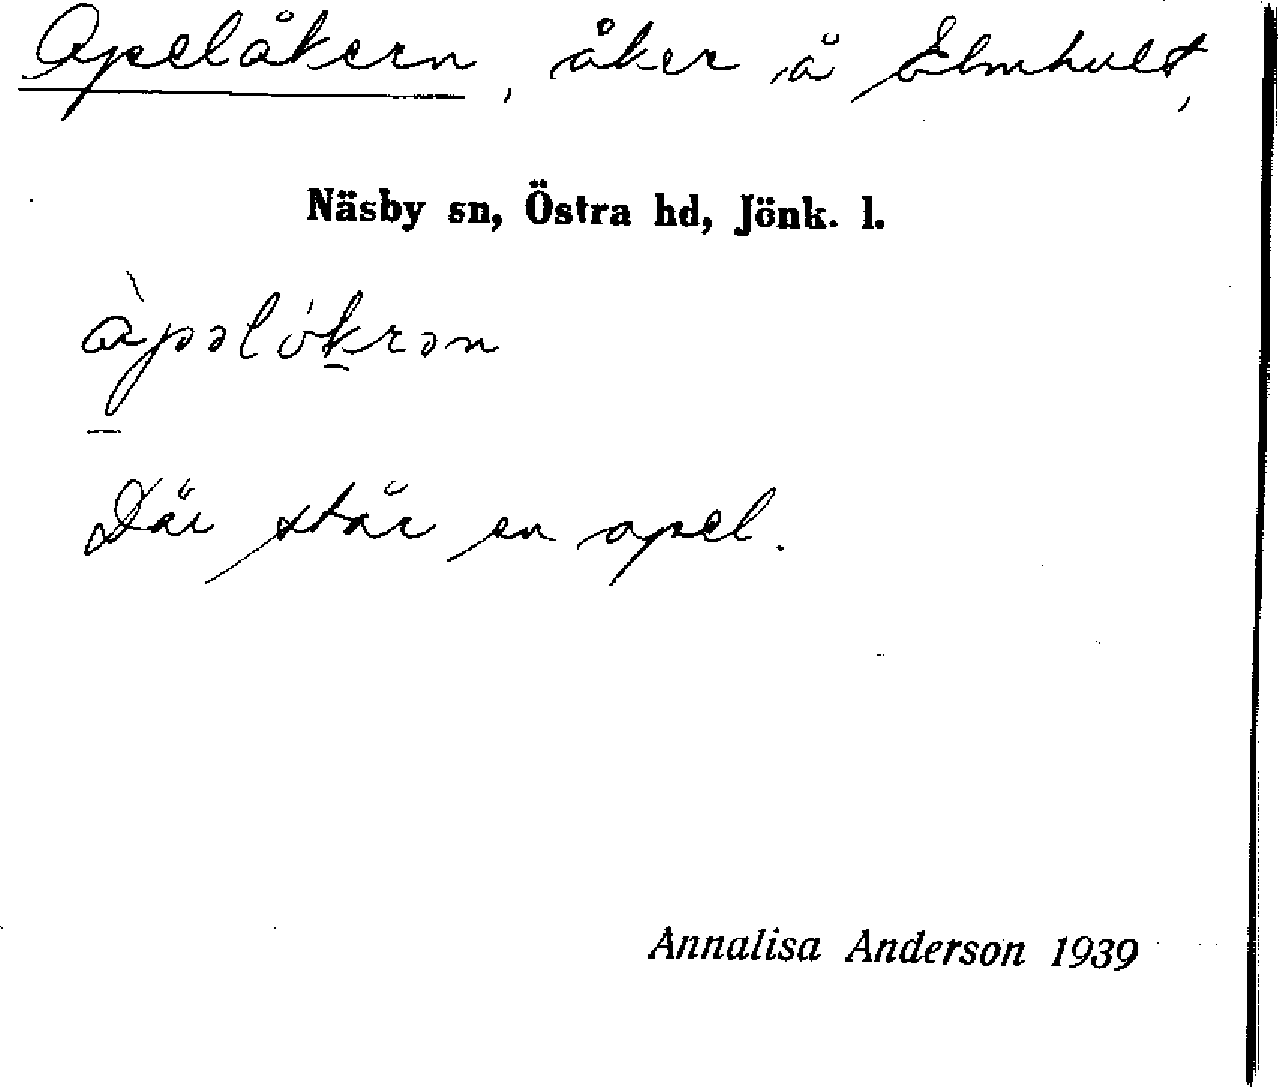 Apelåkern, åker å Elmhult,
Näsby sn, Östra hd, Jönk. l.
àpəlókrən
Där står en apel.
Annalisa Anderson 1939